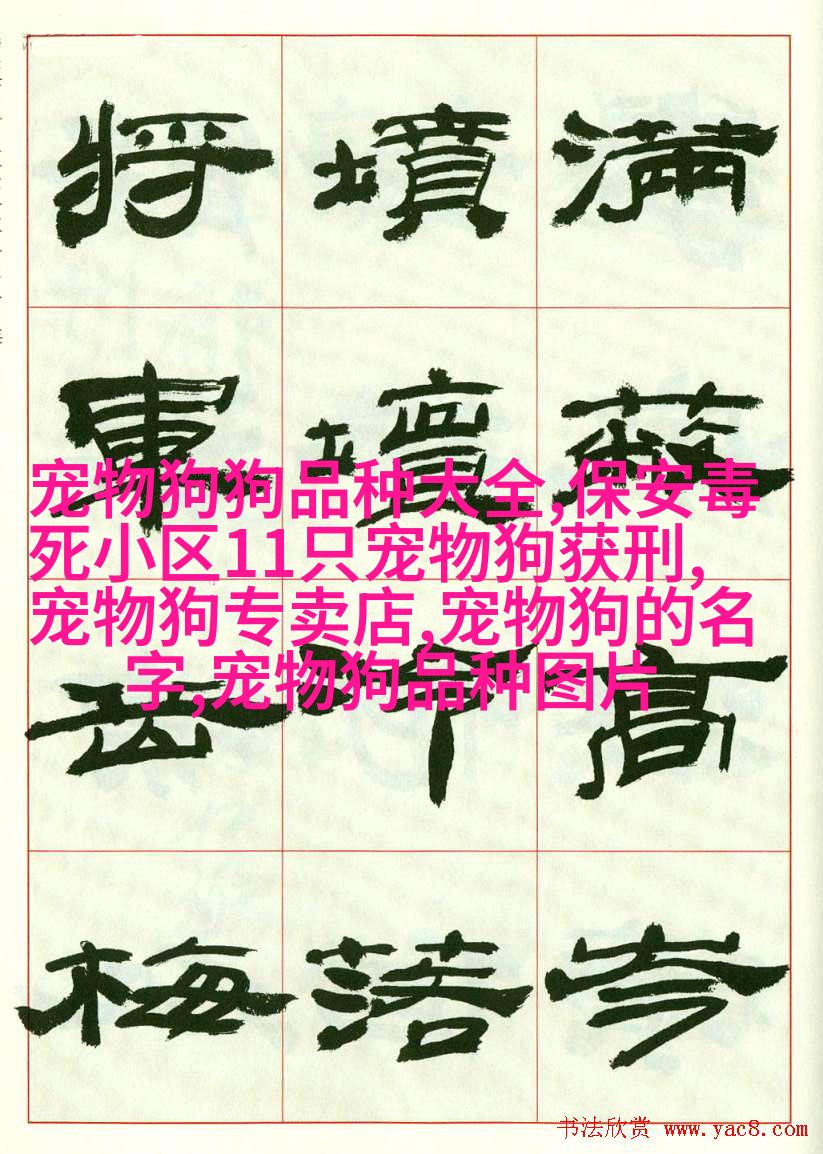 宠物狗狗品种大全,保安毒
死小区11只宠物狗获刑,
宠物狗专卖店,宠物狗的名
字,宠物狗品种图片
满
高
岑
墳
壇
落
将
軍
岳
梅
书法欣赏 www.yac8.com